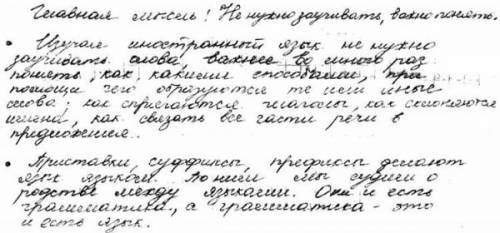 Главная мысль! Не нужно заучивать, важно понять.
• Изучая иностранный язык не нужно
заучивать слова, важнее во много раз
понять, как, какими способами, при
помощи чего образуются те или иные
слова; как спрягаются глаголы, как склоняются
имена, как связать все части речи в
предложения.
• Приставки, суффиксы, префиксы делают
язык языком. По ним мы судим о
родстве между языками. Они и есть
грамматика, а грамматика - это
и есть язык.